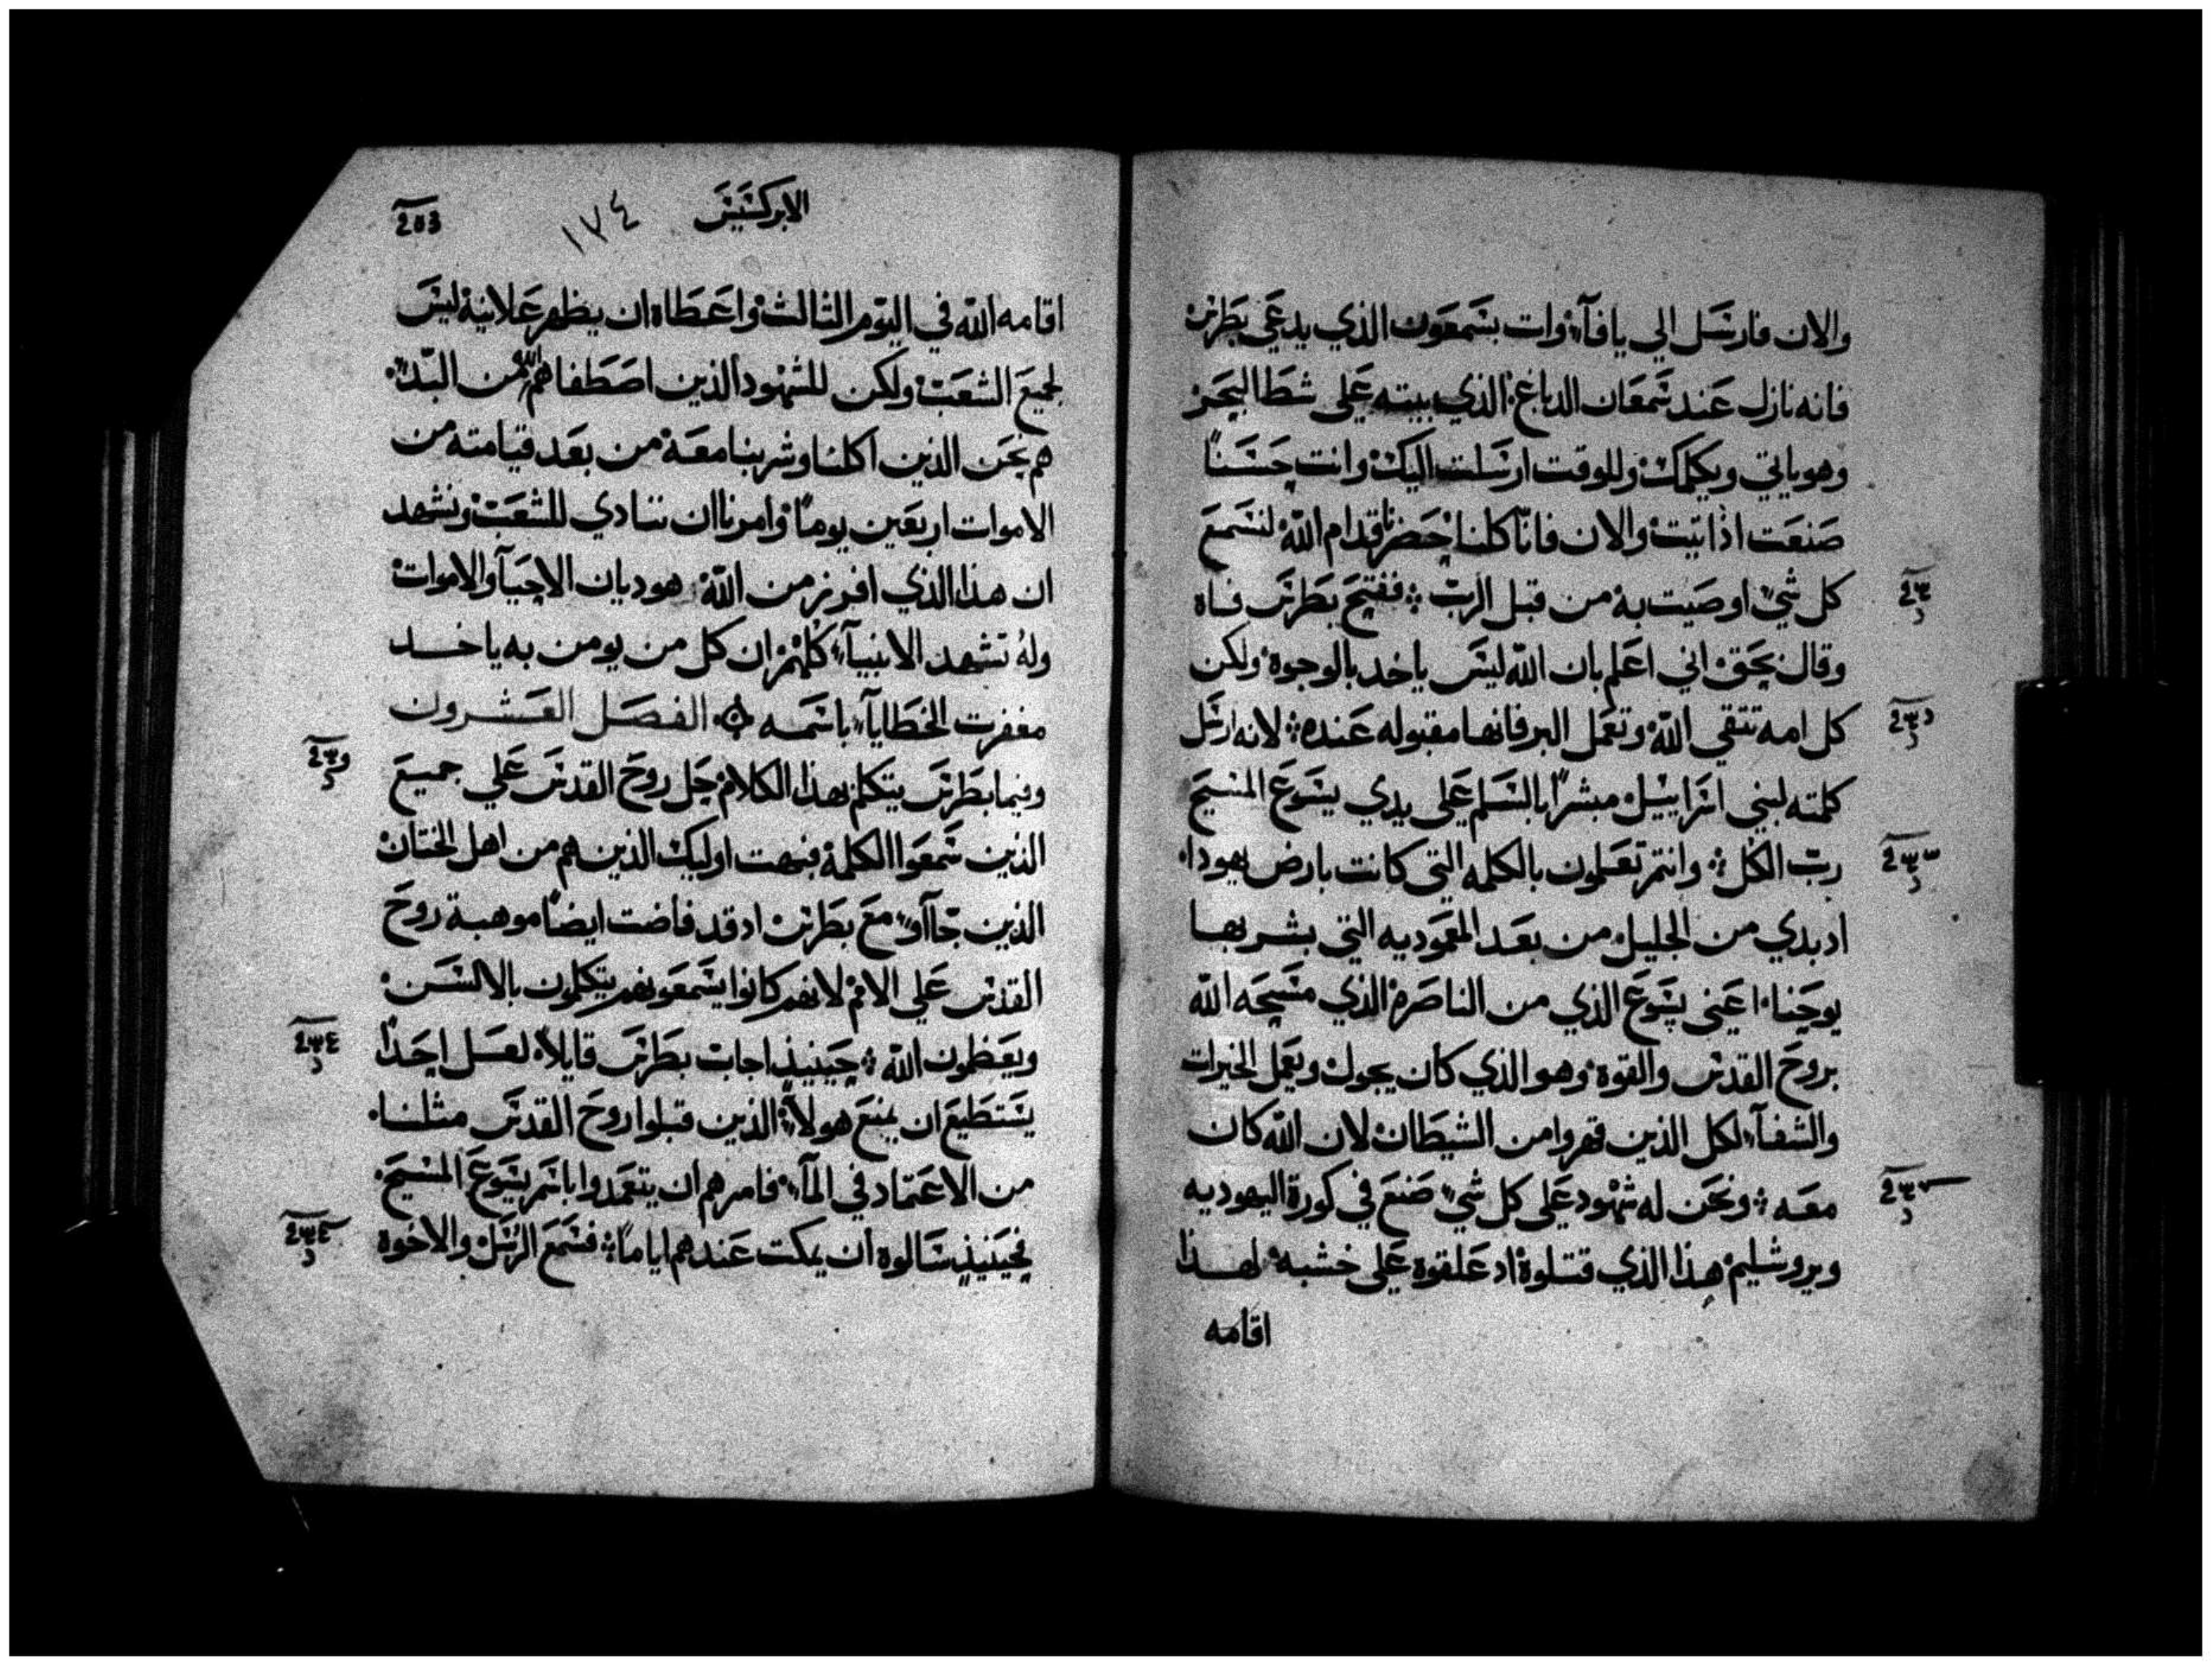 والان فارسل الي يافآ وات بسمعون الذي يدعي بطرس
فانه نازل عند سمعان الدباغ الذي بيته علي شط البحر
وهو ياتي ويكلمك وللوقت ارسلت اليك وانت حسنًا
صنعت اذ اتيت والان فانا كلنا حضرنا قدام الله لنسمع
كل شي اوصيت به من قبل الرب ففتح بطرس فاه
وقال بحق اني اعلم بان الله ليس ياخد بالوجوه ولكن
كل امه تتقي الله وتعمل البر فانها مقبوله عنده لانه ارسل
كلمته لبني اسراييل مبشرًا بالسلم علي يدي يسوع المسيح
رب الكل وانتم تعلمون بالكلمه التي كانت بارض يهودا
اد بدي من الجليل من بعد المعموديه التي بشر بها
يوحنا اعني يسوع الذي من الناصرة الذي مسحه الله
بروح القدس والقوة وهو الذي كان يجول ويعمل الخيرات
والشفآ لكل الذين قهروا من الشيطان لان الله كان
معه ونحن له شهود علي كل شي صنع في كورة اليهوديه
ويروشليم هذا الذي قتلوة اد علقوه علي خشبه لهذا
اقامه
الابركسيس
١٧٤
اقامه الله في اليوم الثالث واعطاه ان يظهر علانية ليس
لجميع الشعب ولكن للشهود الذين اصطفاهم الله من البد
هم نحن الذين اكلنا وشربنا معه من بعد قيامته من
الاموات اربعين يومًا وامرنا ان ننادي للشعب ونشهد
ان هذا الذي افرز من الله هو ديان الاحيآ والاموات
وله تشهد الانبيآ كلهم ان كل من يومن به ياخد
مغفرت الخطايآ باسمه الفصل العشرون
وفيما بطرس يتكلم بهذا الكلام حل روح القدس علي جميع
الذين سمعوا الكلمة فبهت اوليك الذين هم من اهل الختان
الذين جآاو مع بطرس اد قد فاضت ايضًا موهبة روح
القدس علي الامم لانهم كانوا يسمعونهم يتكلمون بالالسن
ويعظمون الله حينيذ اجاب بطرس قايلاً لعل احدًا
يستطيع ان يمنع هولآ الذين قبلوا روح القدس مثلنا
من الاعتماد في المآ فامرهم ان يتعمدوا باسم يسوع المسيح
فحينيذ سالوه ان يمكت عندهم اياماً فسمع الرسل والاخوة